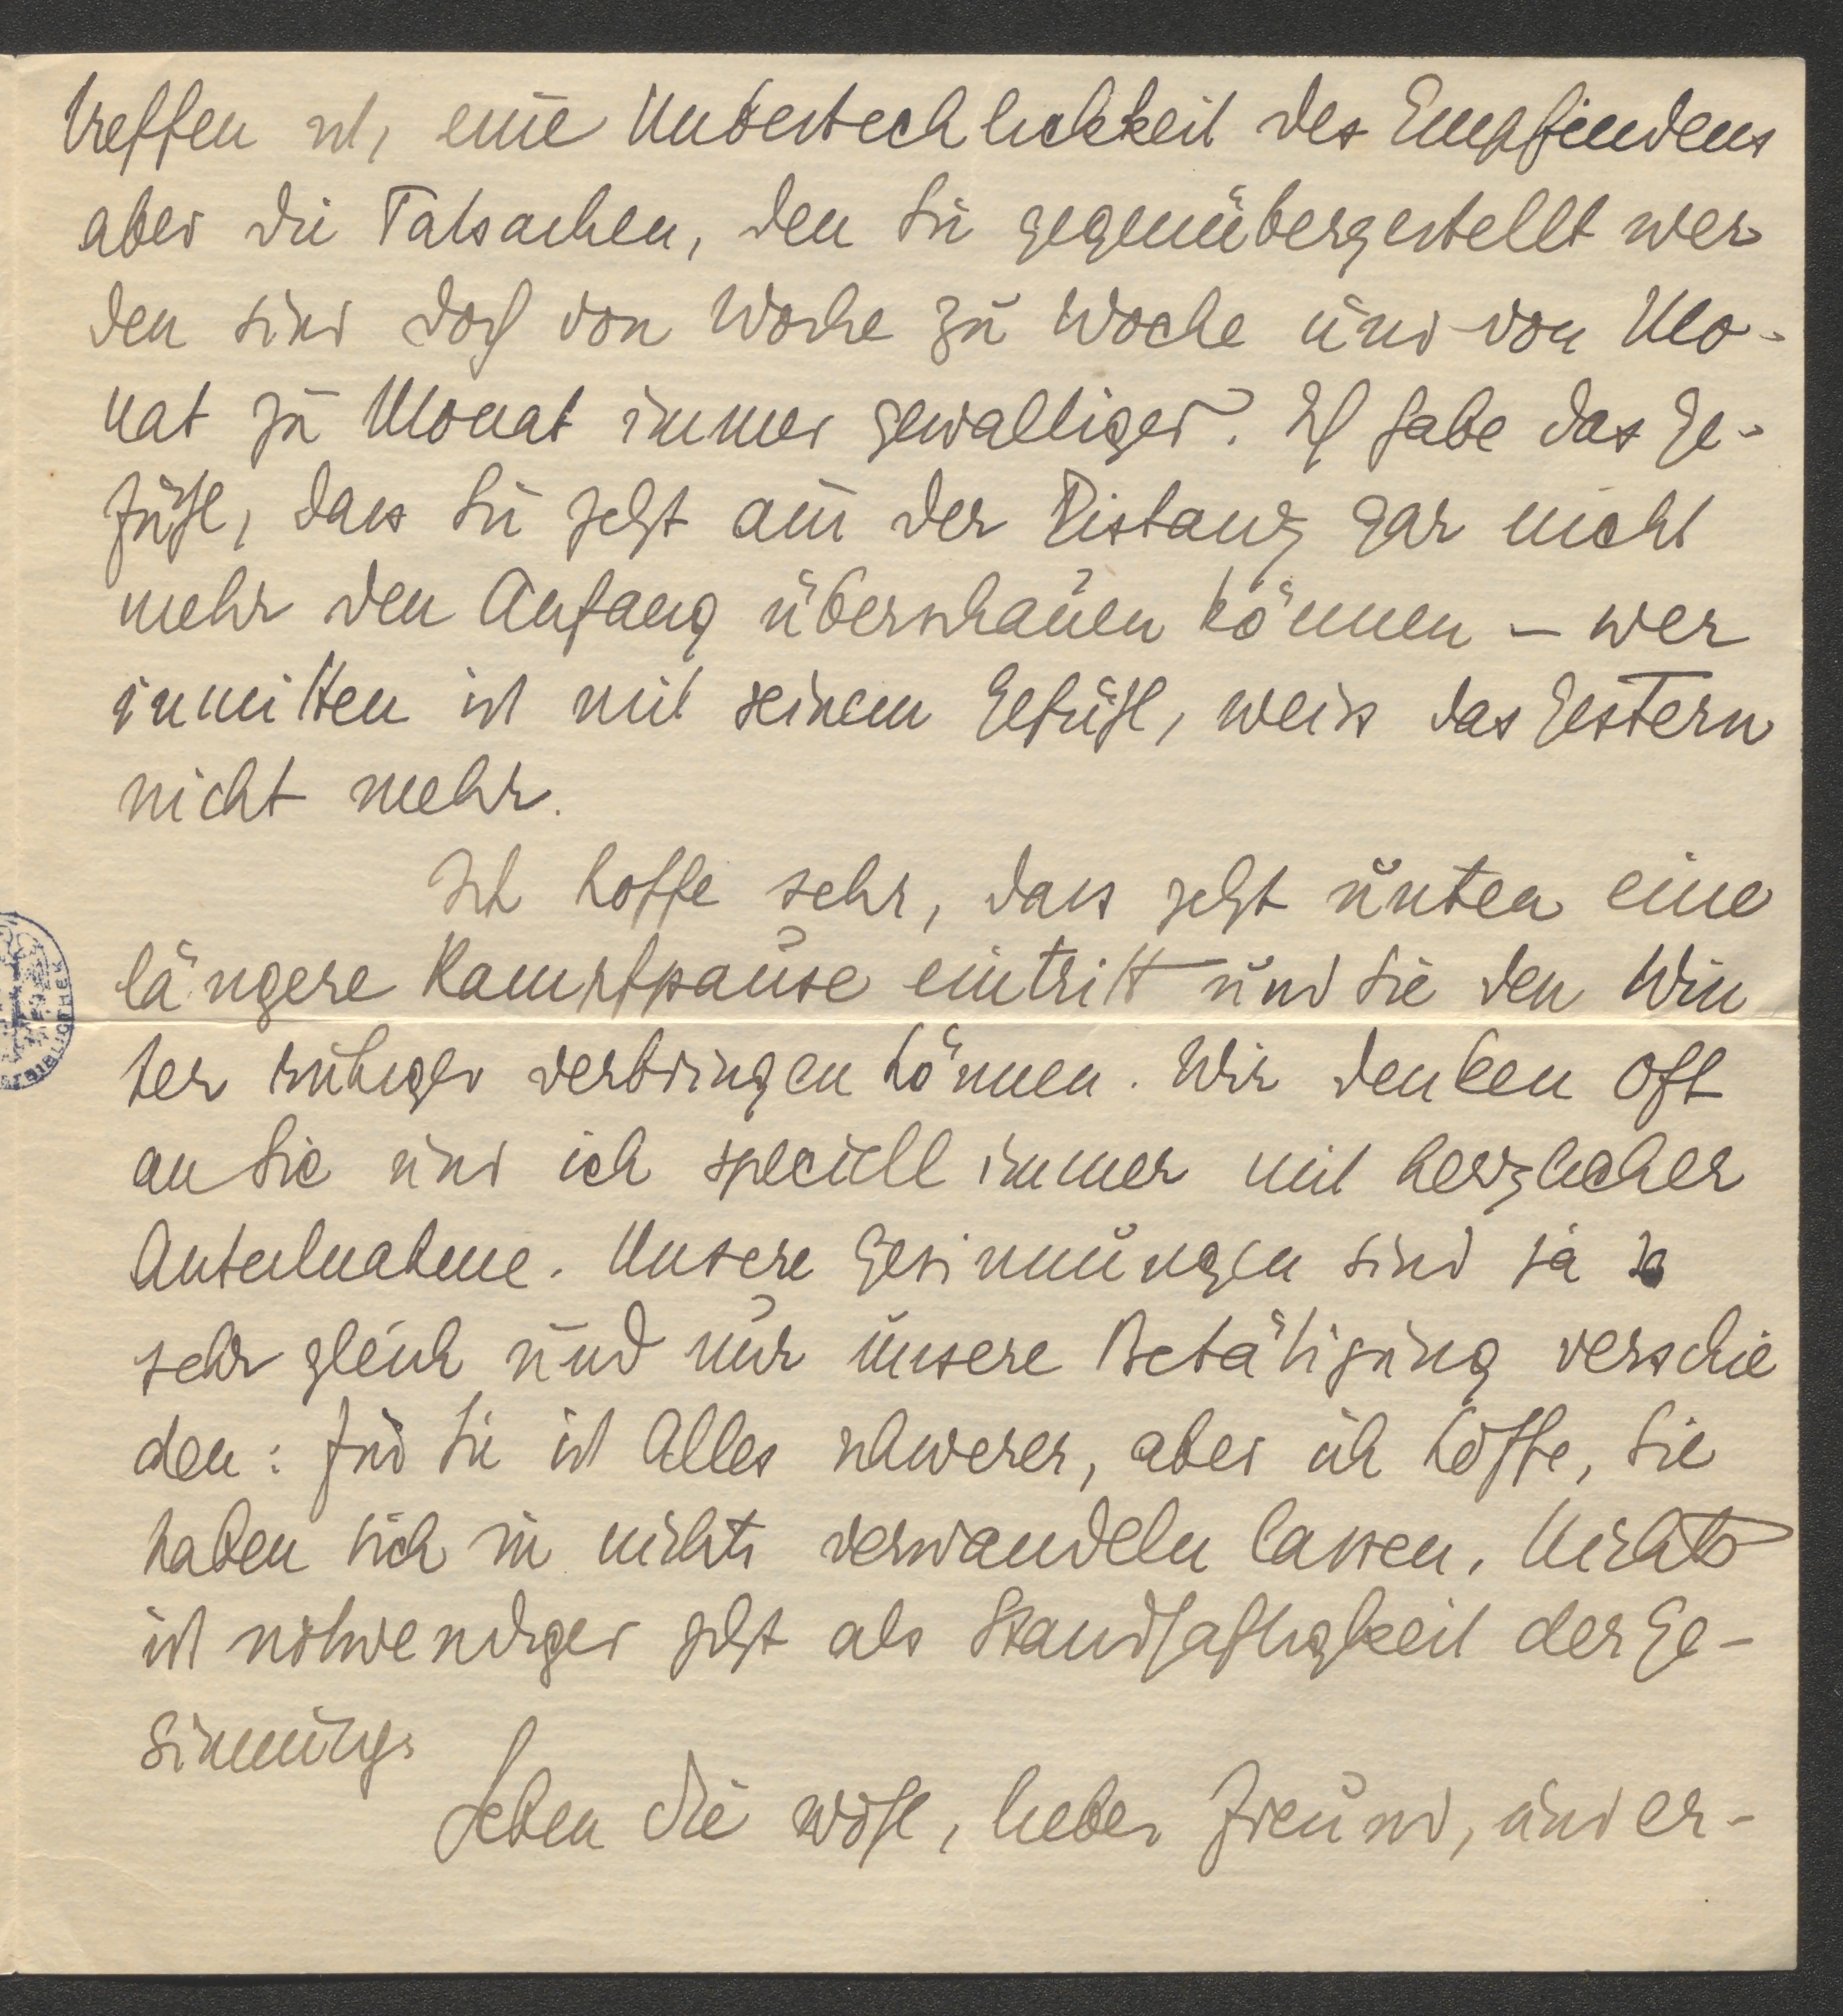 treffen ist, eine Unbestechlichkeit des Empfindens
aber die Tatsachen, den Sie gegenübergestellt wer
den sind doch von Woche zu Woche und von Mo-
nat zu Monat immer gewaltiger. Ich habe das Ge-
fühl, dass Sie jetzt aus der Distanz gar nicht
mehr den Anfang überschauen können – wer
inmitten ist mit seinem Gefühl, weiss das Gestern
nicht mehr.
Ich hoffe sehr, dass jetzt unten eine
längere Kampfpause eintritt und Sie den Win
ter ruhiger verbringen können. Wir denken oft
an Sie und ich speciell immer mit herzlicher
Anteilnahme. Unsere Gesinnungen sind ja so
sehr gleich und nur unsere Betätigung verschie
den: für Sie ist Alles schwerer, aber ich hoffe, Sie
haben sich in nichts verwandeln lassen. Nichts
ist notwendiger jetzt als Standhaftigkeit der Ge-
sinnung.
Leben Sie wohl, lieber Freund, und er-
BIBLIOTHEK